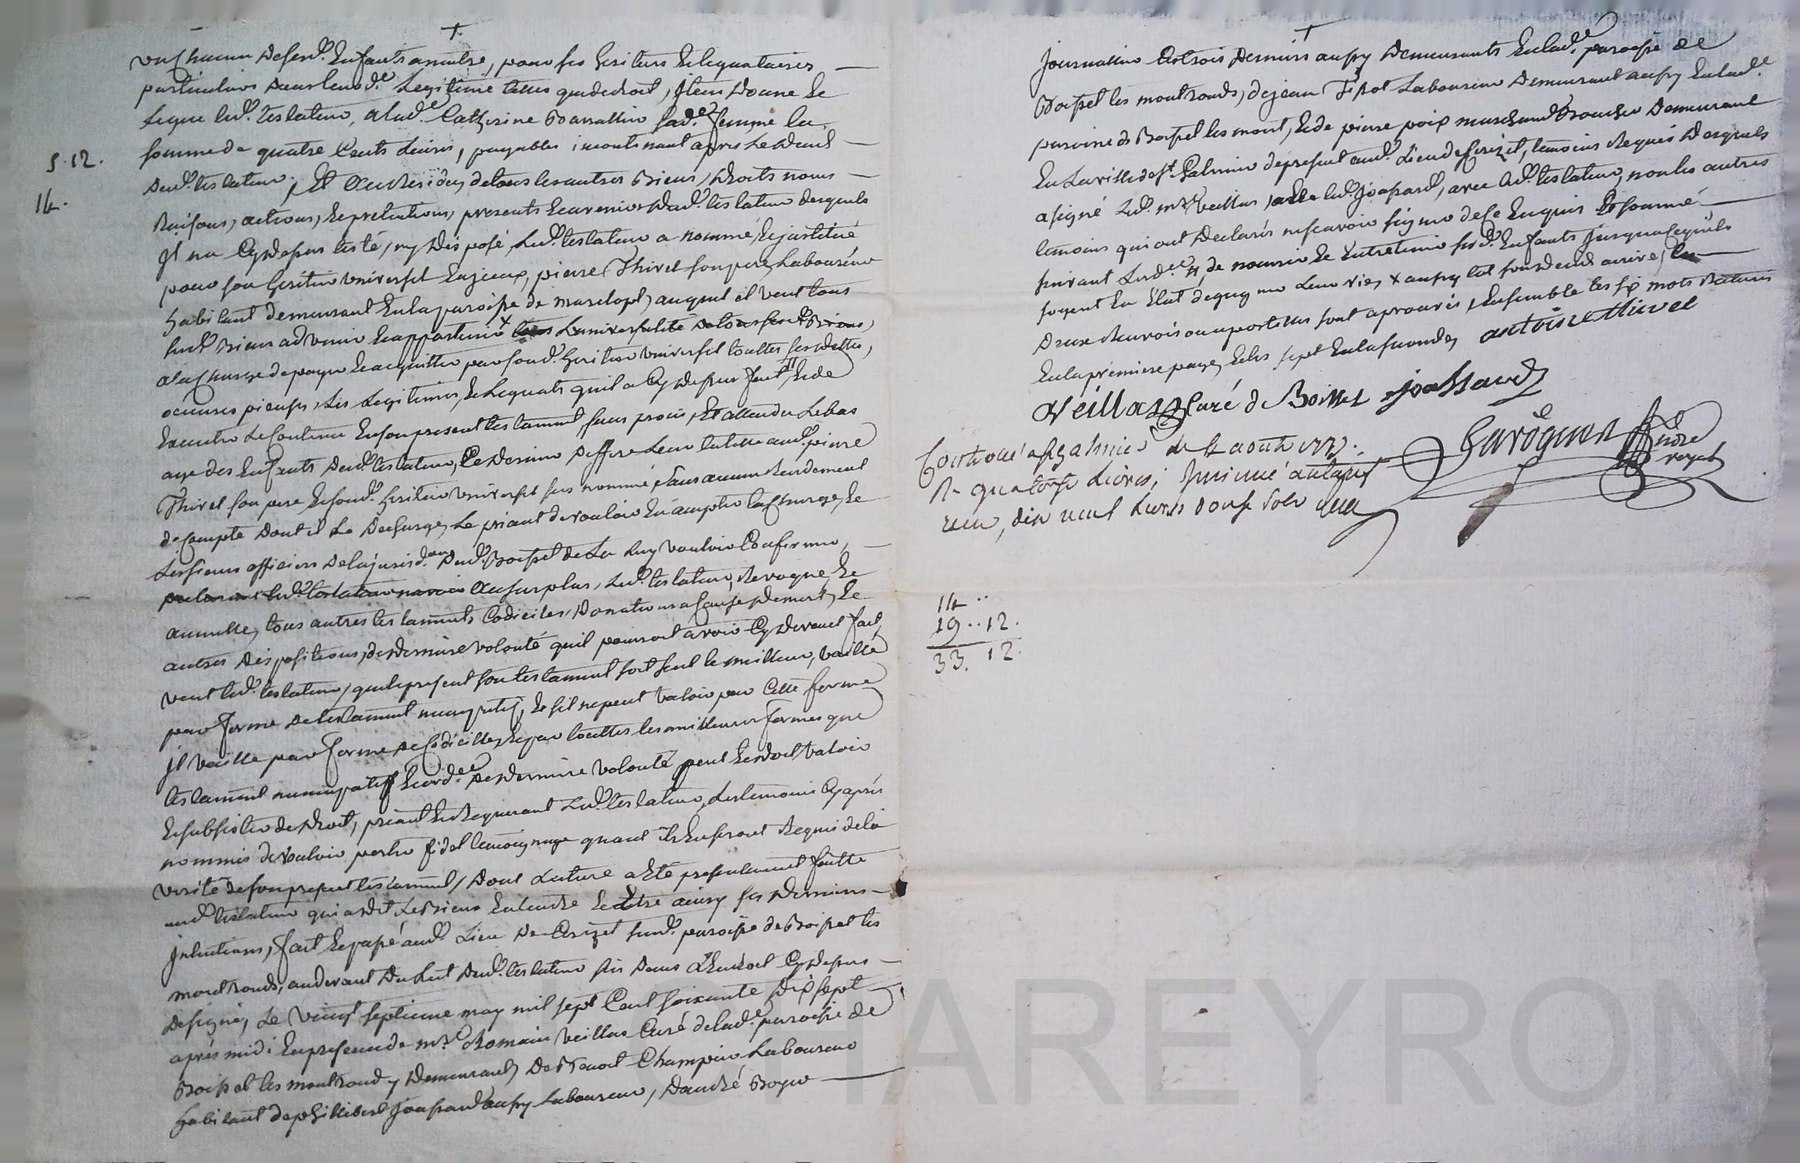 un chacun desd. Enfants a naitre, pour ses heritiers & legataires
particuliers dans leurd.e Legitime telle que de droit, Item Donne Et
Legue led. testateur, a lad.e Catherine Barrallon sad.e femme la
somme de quatre Cents Livres, payables incontinant apres Le deceds
5. 12.
dud. testateur, Et Au Residu de tous les autres Biens, droits noms
14.
Raisons, actions, & pretentions, presents & avenir dud. testateur desquels
Il n'a Cy dessus testé, ny disposé Led. testateur a nommé, & institué
pour son heritier universel Ensemble, pierre Thivel son pere Laboureur
habitant demeurant En la paroisse de marclopt, auquel il veut tous
sesd. Biens advenir & appartenir x l'universalité de tous sesd. Biens,
a la Charge de payer & acquitter par sond. heritier universel touttes ses dettes,
oeuvres pieuses, Les Legitimes, & Legats qu'il a Cy dessus fait, & de
Executer Le Contenu En son present testament sans procès, Et attendu Le bas
age des Enfants dud. testateur, Ce dernier deffere Leur tutelle aud. pierre
Thivel son pere & sond. heritier universel sus nommé, sans aucun rendement
de Compte dont il Le decharge, Le priant de vouloir En accepter la Charge, &
Les sieurs officiers de la jurisd.on dud. Boisset de La luy vouloir Confirmer,
Au surplus, Led. testateur, Revoque, &
annulle, tous autres testaments, Codiciles, donations a Cause de mort, &
autres dispositions, de derniere volonté qu'il pourroit avoir Cy devant fait,
veut led. testateur, que le present son testament soit seul le meilleur, vaille
par forme de testament nuncupatif, & s'il ne peut valoir par Cette forme
Il vaille par forme de Codicille, & par touttes les meilleures formes que
testament nuncupatif & ord.ce de derniere volonté peut & doit valoir
& subsister de droit, priant & Requerant Led. testateur, les temoins Cy après
nommés de vouloir porter fidel temoignage quand Ils En seront Requis de la
verité de son present testament, dont Lecture a Eté presentement faitte
aud. testateur qui a dit Le Bien Entendre & Etre ainsy ses dernieres
Intentions, fait & passé aud. Lieu de Crizet susd. paroisse de Boisset les
montronds, au devant du Lit dud. testateur sis dans L'Endroit Cy dessus
designé, Le vingt septieme may mil sept Cent soixante dix sept
après midi En presence de m.re Romain Veillas Curé de lad.e paroisse de
Boisset les montrond, y demeurant, de Benoit Champier Laboureur
habitant de philibert Joassard aussy Laboureur, d'andré Boyer
Journallier Les trois derniers aussy Demeurants En lad.e paroisse de
Boisset les montronds, de jean Tissot Laboureur Demeurant aussy En lad.e
paroisse de Boisset les mont, & de pierre poix marchand Boucher Demeurant
En La ville de s.t Galmier de present aud. Lieu de Crizet, temoins Requis Desquels
a signé Led. m.re Veillas, & led. Joassard, avec led. testateur, non les autres
temoins qui ont Declarés ne scavoir signer de Ce Enquis & sommé
suivant Lord.ce, de nourrir & Entretenir sesd. Enfants jusqua Cequils
soyent En Etat de gagner Leur vie, x aussy tot son deceds arrivé,
deux Renvois ou apostilles sont aprouvés, Ensemble les six mots Raturés
En la premiere page, & les sept En la seconde, antoine thivel
Veillas Curé de Boisset Joassard
Controllé a s.t galmier le 4 aoutt 1777.
R. quatorze Livres, Insinué au tarif
recu, dix neuf Livres douze sols
Garognon no.re
royal
14 ..
19 .. 12.
33. 12.
HAREYRON